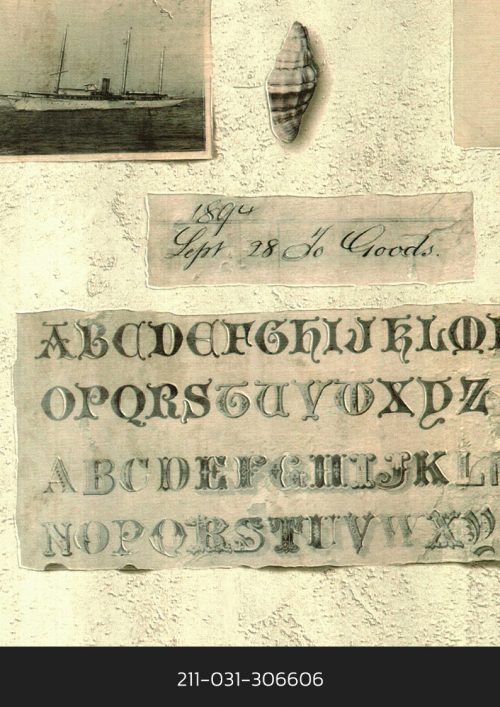 1894
Sept 28 To Goods.
ABCDEFGHIJKLM
OPQRSTUVWXYZ
ABCDEFGHIJKL
NOPQRSTUVWXY
211-031-306606